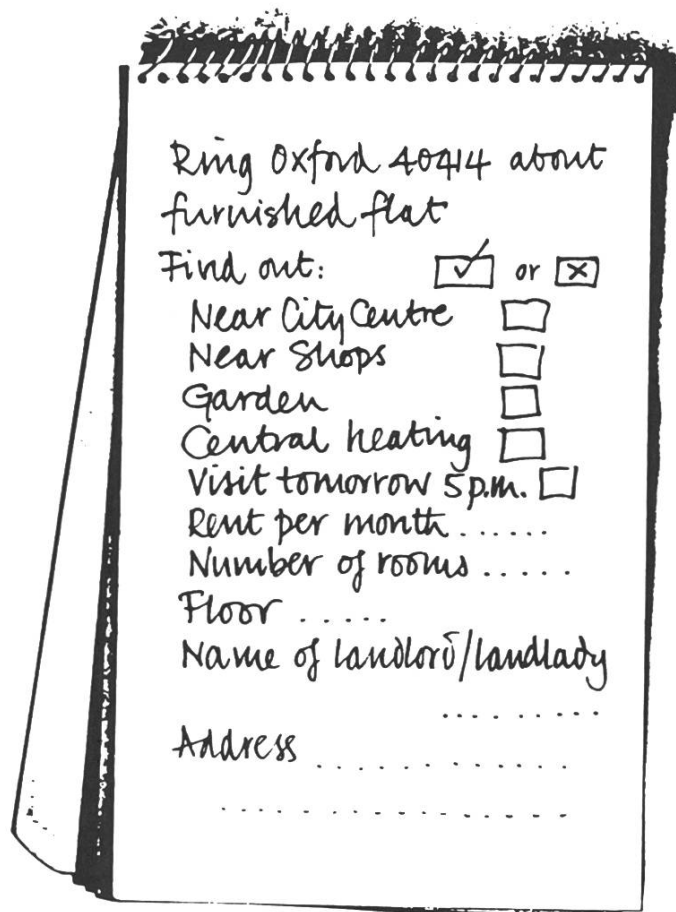 Ring Oxford 40414 about
furnished flat
Find out: ✓ or ×
Near City Centre
Near Shops
Garden
Central heating
Visit tomorrow 5 p.m.
Rent per month ......
Number of rooms .....
Floor .....
Name of landlord/landlady
.........
Address ............
................